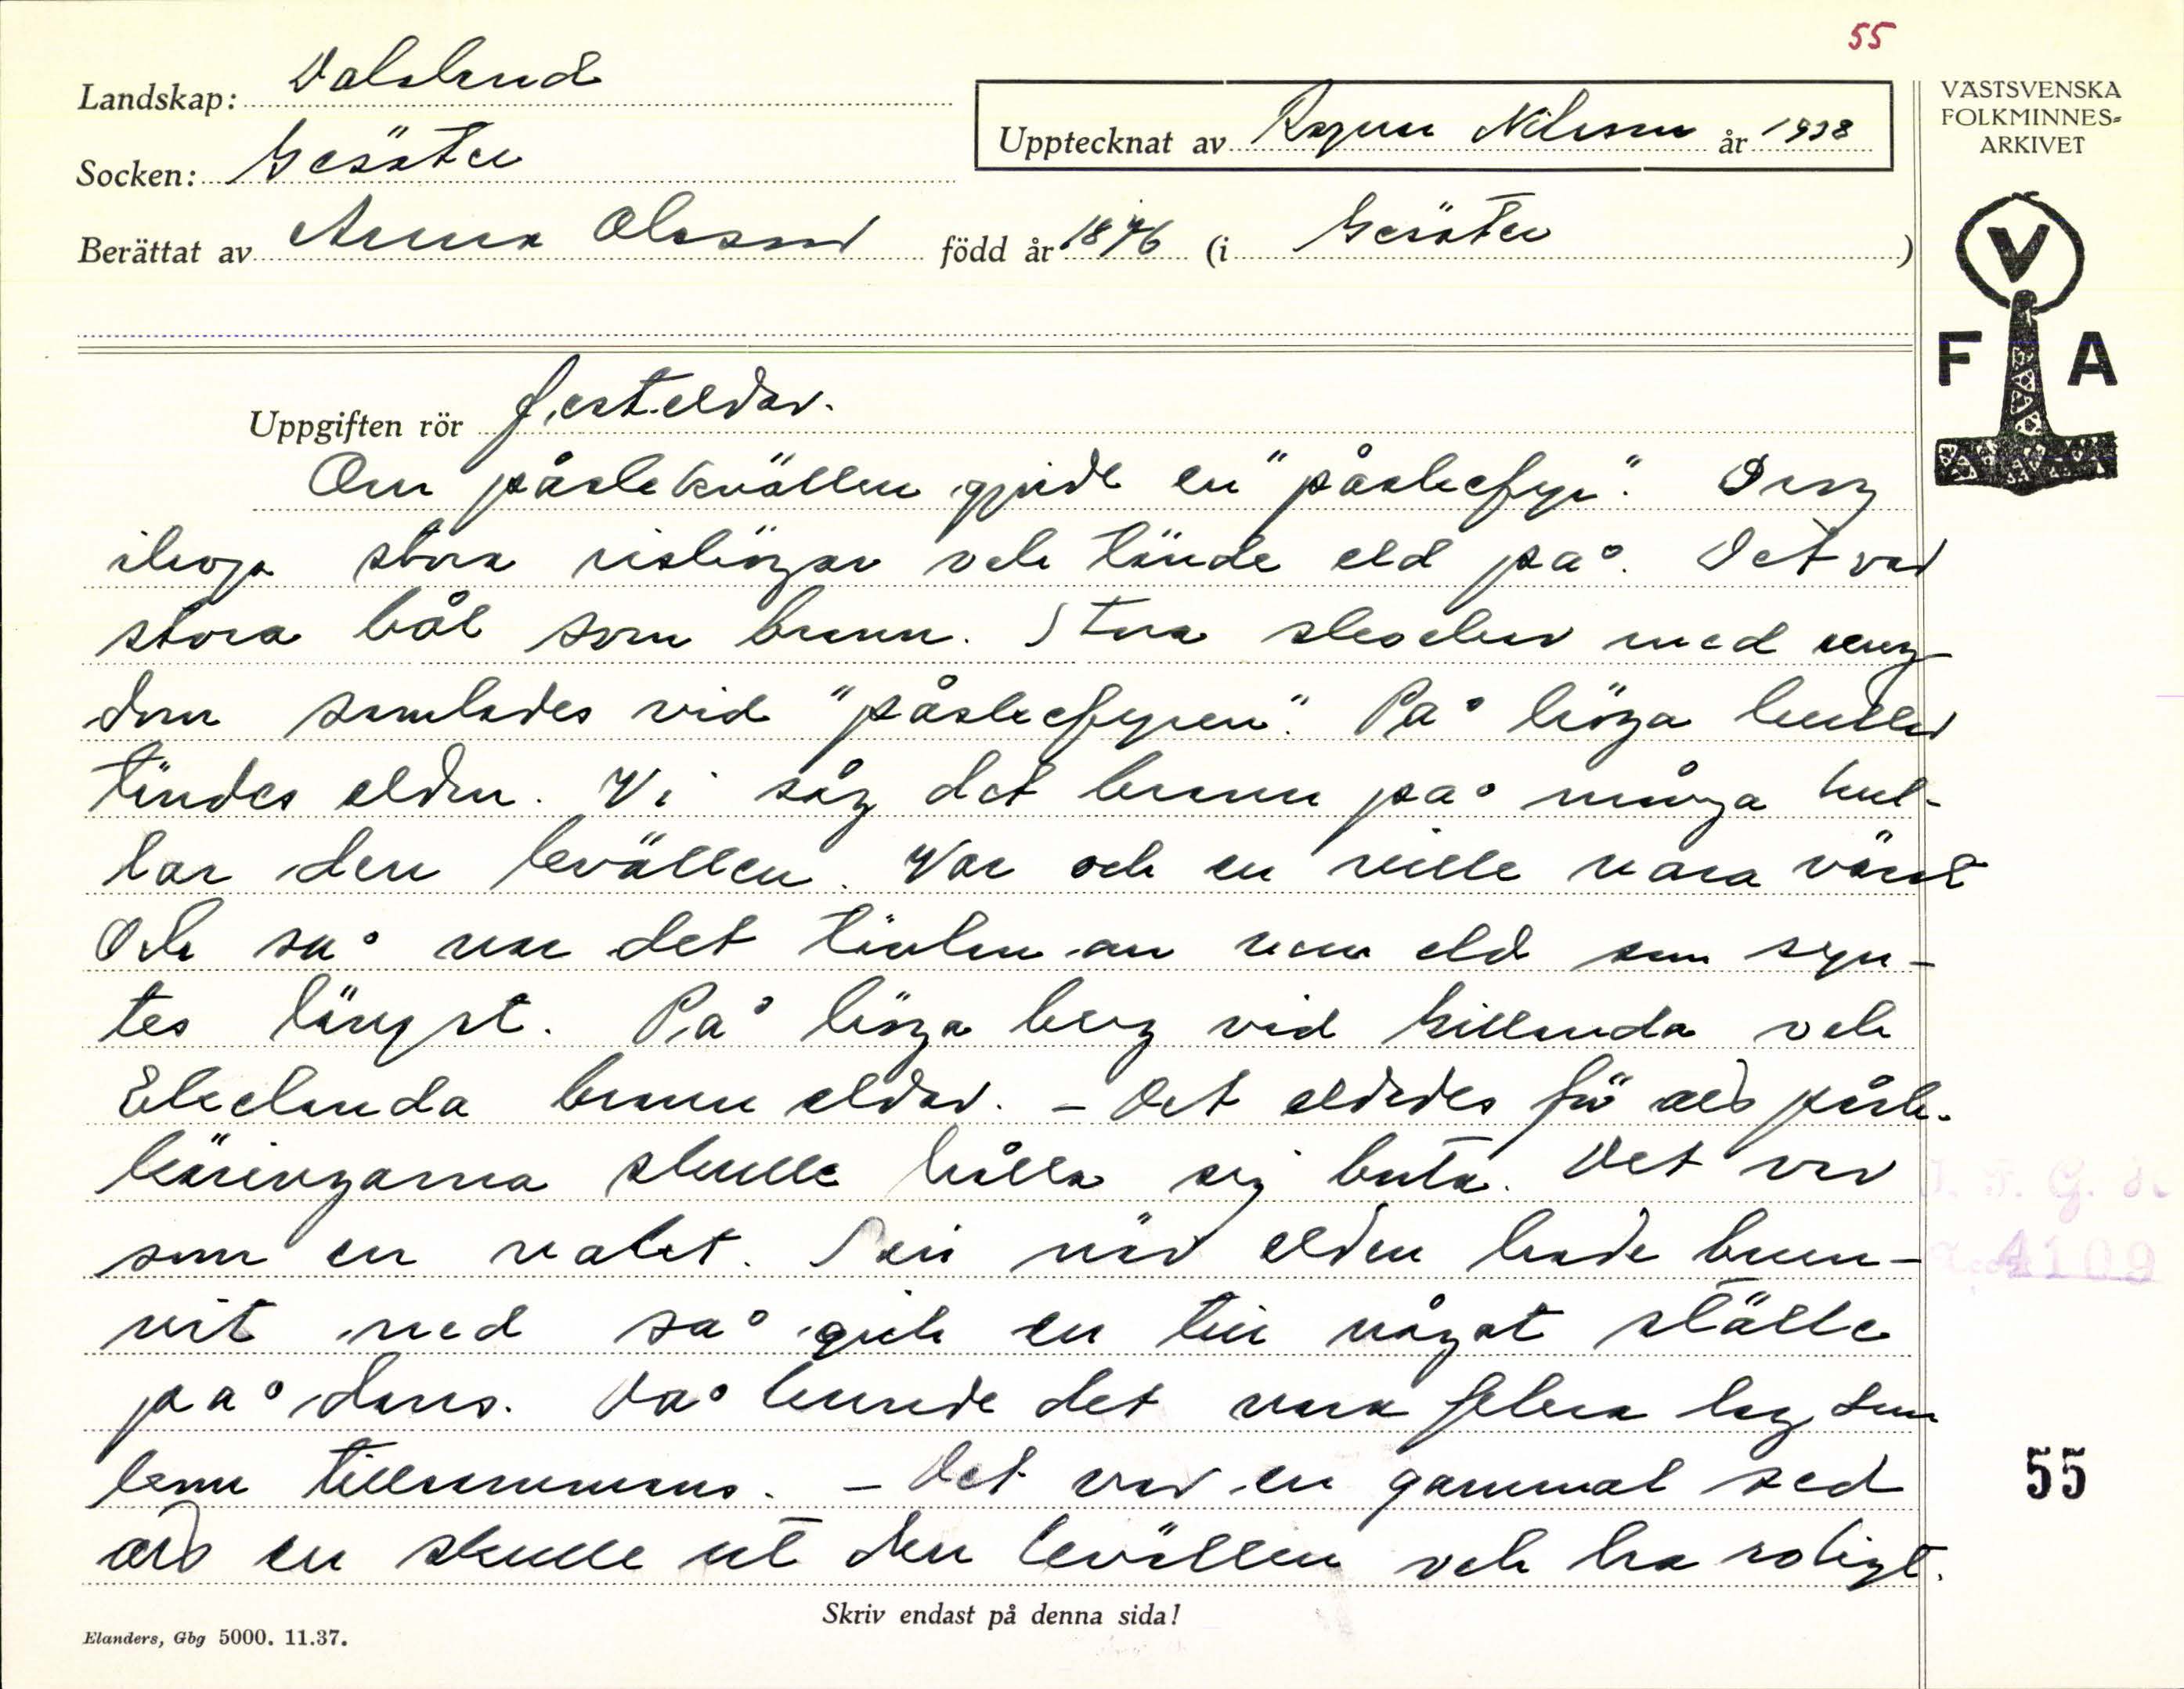 55
Landskap: Dalsland
Upptecknat av Ragnar Nilsson år 1938
VÄSTSVENSKA
FOLKMINNES-
ARKIVET
Socken: Gesäter
Berättat av Anna Olsson född år 1876 (i Gesäter)
V
F A
Uppgiften rör festeldar.
Om påskkvällen gjorde en "påskefyr". Drog
ihop stora rishögar och tände eld på. Det var
stora bål som brann. Stora skockar med ung
dom samlades vid "påskefyren". På höga kullar
tändes elden. Vi såg det brann på många kul-
lar den kvällen. Var och en ville vara värst
Och så var det tävlan om vems eld som syn-
tes längst. På höga berg vid Hillanda och
Ekelanda brann eldar. - Det eldades för att påsk-
käringarna skulle hålla sig borta. Det var
som en vakt. Sen när elden hade brun-
nit ned så gick en till något ställe
på dans. Då kunde det vara flera lag som
kom tillsammans. - Det var en gammal sed
att en skulle ut den kvällen och ha roligt.
4109
55
Skriv endast på denna sida!
Elanders, Gbg 5000. 11.37.